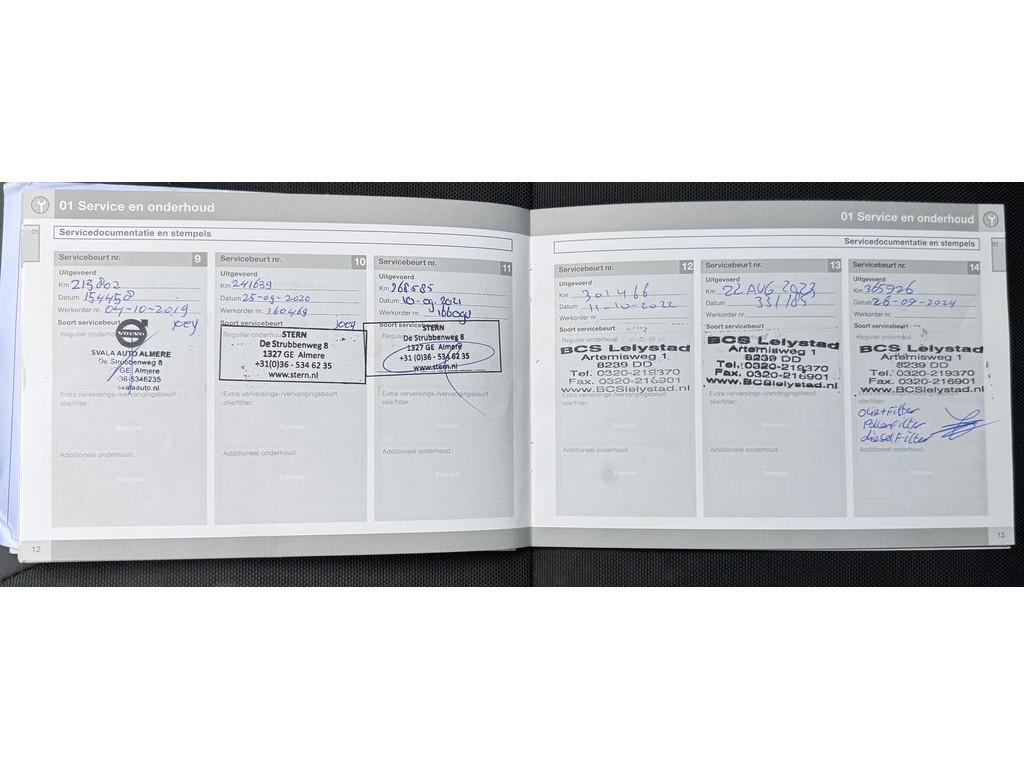 01 Service en onderhoud
01
Servicedocumentatie en stempels
Servicebeurt nr. 9
Uitgevoerd
Km 213802
Datum 154458
Werkorder nr. 04-10-2019
Soort servicebeurt Joey
VOLVO
SVALA AUTO ALMERE
De Strubbenweg 8
GE Almere
36-5346235
svalaauto.nl
Extra verversings-/vervangingsbeurt
olie/filter:
Stempel
Additioneel onderhoud
Stempel
Servicebeurt nr. 10
Uitgevoerd
Km 241639
Datum 25-09-2020
Werkorder nr. 160469
Soort servicebeurt Joey
Regulier onderhoud:
STERN
De Strubbenweg 8
1327 GE Almere
+31(0)36 - 534 62 35
www.stern.nl
Extra verversings-/vervangingsbeurt
olie/filter:
Stempel
Additioneel onderhoud
Stempel
Servicebeurt nr. 11
Uitgevoerd
Km 268585
Datum 10-09-2021
Werkorder nr.
Soort servicebeurt
STERN
De Strubbenweg 8
1327 GE Almere
+31(0)36 - 534 62 35
www.stern.nl
Extra verversings-/vervangingsbeurt
olie/filter:
Stempel
Additioneel onderhoud
Stempel
12
01 Service en onderhoud
01
Servicedocumentatie en stempels
Servicebeurt nr. 12
Uitgevoerd
Km 301466
Datum 11-10-2022
Werkorder nr.
Soort servicebeurt
Regulier onderhoud:
BCS Lelystad
Artemisweg 1
8239 DD
Tel. 0320-219370
Fax. 0320-216901
www.BCSlelystad.nl
Extra verversings-/vervangingsbeurt
olie/filter:
Stempel
Additioneel onderhoud
Servicebeurt nr. 13
Uitgevoerd
Km 22 AUG 2023
Datum 331183
Werkorder nr.
Soort servicebeurt
BCS Lelystad
Artemisweg 1
8239 DD
Tel. 0320-219370
Fax. 0320-216901
www.BCSlelystad.nl
Extra verversings-/vervangingsbeurt
olie/filter:
Stempel
Additioneel onderhoud
Servicebeurt nr. 14
Uitgevoerd
Km 365926
Datum 26-09-2024
Werkorder nr.
Soort servicebeurt
Regulier onderhoud:
BCS Lelystad
Artemisweg 1
8239 DD
Tel. 0320-219370
Fax. 0320-216901
www.BCSlelystad.nl
olie+Filter
PollenFilter
dieselFilter
Additioneel onderhoud
13